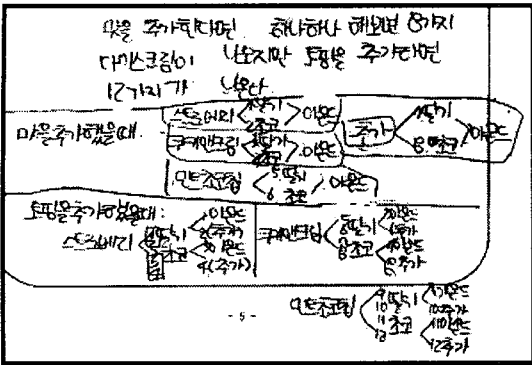 맛을 추가한다면 하나하나 해보면 8가지
아이스크림이 나오지만 토핑을 추가하면
12가지가 나온다.
맛을추가했을때.
스트로베리 1딸기 2초코 아몬드
쿠키앤크림 3딸기 4초코 아몬드
민트초코칩 5딸기 6초코 아몬드
추가 7딸기 8초코 아몬드
토핑을추가했을때:
스트로베리 딸기 1아몬드 2(추가)
초코 3아몬드 4(추가)
쿠키앤크림 딸기 아몬드 추가
초코 아몬드 8추가
민트초코칩 9 10 딸기 9아몬드 10추가
11 12 초코 11아몬드 12추가
- 5 -